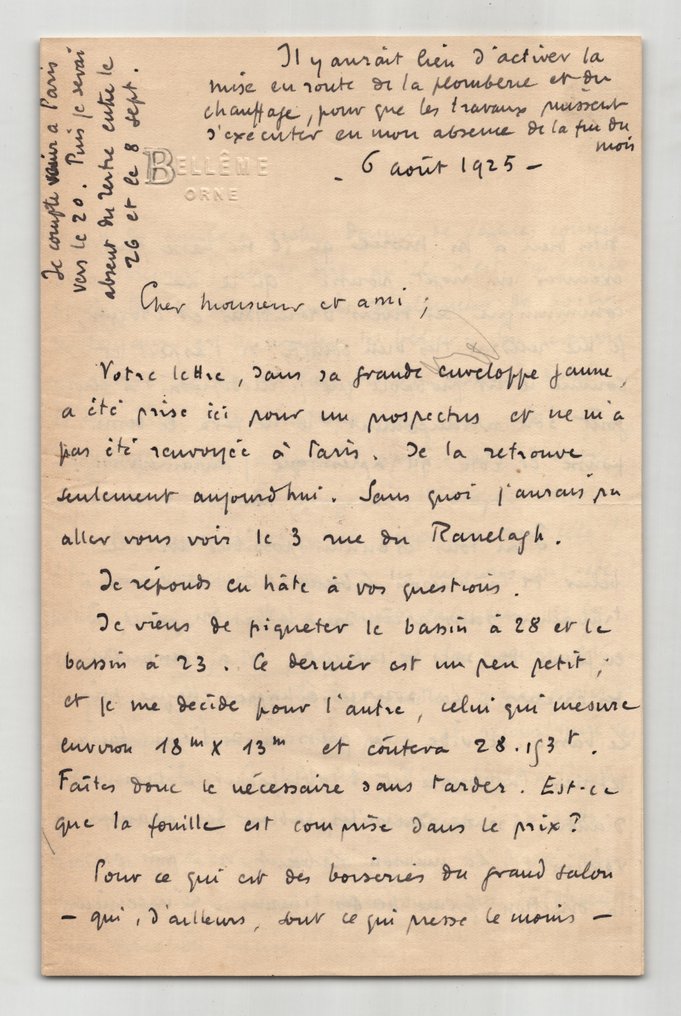 Il y aurait lieu d'activer la
mise en route de la plomberie et du
chauffage, pour que les travaux puissent
s'exécuter en mon absence de la fin du
mois
Je compte venir à Paris
vers le 20. Puis je serai
absent du tertre entre le
26 et le 8 sept.
BELLÊME
ORNE
- 6 août 1925 -
Cher monsieur et ami ;
Votre lettre, dans sa grande enveloppe jaune,
a été prise ici pour un prospectus et ne m'a
pas été renvoyée à Paris. Je la retrouve
seulement aujourd'hui. Sans quoi j'aurais pu
aller vous voir le 3 rue du Ranelagh.
Je réponds en hâte à vos questions.
Je viens de piqueter le bassin à 28 et le
bassin à 23. Ce dernier est un peu petit ;
et je me décide pour l'autre, celui qui mesure
environ 18m X 13m et coûtera 28.153 f.
Faites donc le nécessaire sans tarder. Est-ce
que la fouille est comprise dans le prix ?
Pour ce qui est des boiseries du grand salon
– qui, d'ailleurs, sont ce qui presse le moins –